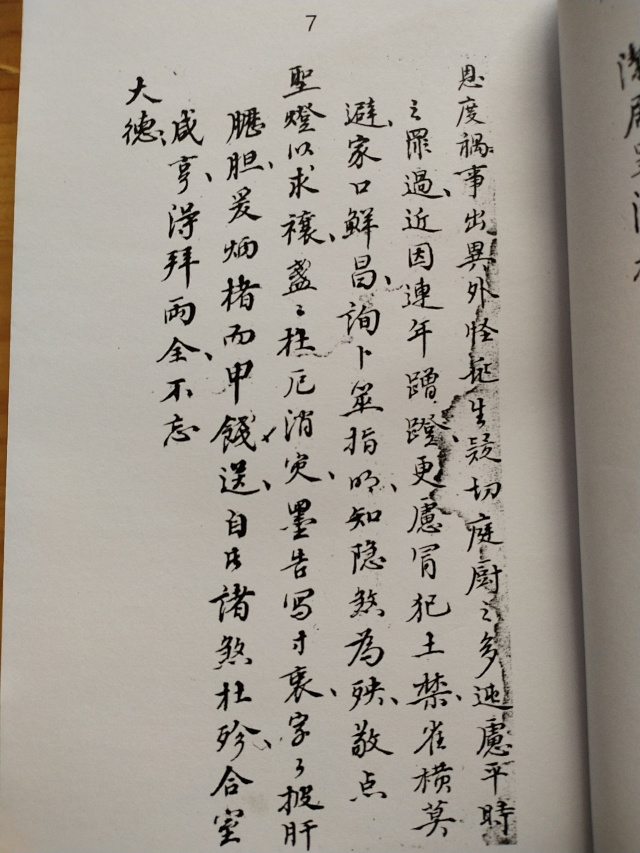 7
恩度禍事出異外怪延生疑切庭厨之多迍慮平時
之罪過近因連年蹭蹬更慮冐犯土禁雀横莫
避家口鮮昌詢卜筮指明知隐煞為殃敬点
聖燈以求禳盞〻杜厄消灾墨告写寸衷字〻披肝
瀝胆爰炳楮而甲餞送自此諸煞杜殄合室
咸亨得拜兩全不忘
大德